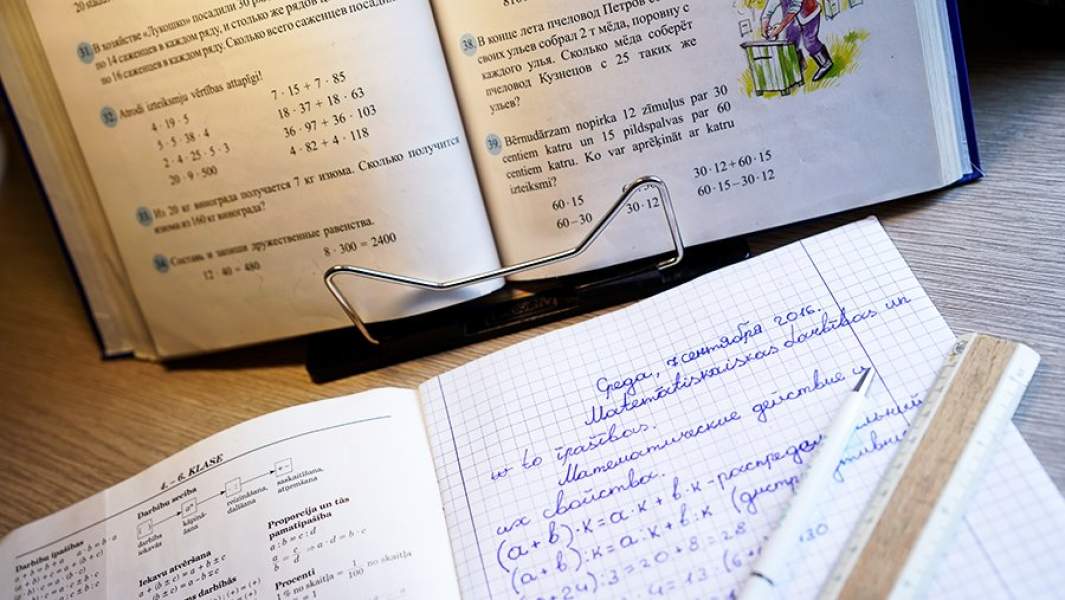 20
посадили 30
31. В хозяйстве «Лукошко»
по 14 саженцев в каждом ряду, и столько же рядов
по 16 саженцев в каждом ряду. Сколько всего саженцев посадили
32. Atrodi izteiksmju vērtības attapīgi!
4 · 19 · 5
5 · 5 · 38 · 4
2 · 4 · 25 · 5 · 3
20 · 9 · 500
7 · 15 + 7 · 85
18 · 37 + 18 · 63
36 · 97 + 36 · 103
4 · 82 + 4 · 118
33. Из 20 кг винограда получается 7 кг изюма. Сколько получится
изюма из 160 кг винограда?
34. Составь и запиши дружественные равенства.
12 · 40 = 480
8 · 300 = 2400
38. В конце лета пчеловод Петров с
своих ульев собрал 2 т мёда, поровну с
каждого улья. Сколько мёда соберёт
пчеловод Кузнецов с 25 таких же
ульев?
39. Bērnudārzam nopirka 12 zīmuļus par 30
centiem katru un 15 pildspalvas par 60
centiem katru. Ko var aprēķināt ar katru
izteiksmi?
60 · 15
60 – 30
30 · 12
30 · 12 + 60 · 15
60 · 15 – 30 · 12
4. – 6. KLASE
Darbību secība
darbība
iekavās
kāpinā-
šana
reizināšana,
dalīšana
saskaitīšana,
atņemšana
Darbību īpašības
a · b = b · a
Iekavu atvēršana
a + (b ± c) = a + b ± c
a – (b ± c) = a – b ∓ c
darbības
Proporcija un tās
pamatīpašība
a : b = c : d
a/b = c/d ⇒ a · d = b · c
Procenti
1 % no skaitļa = 1/100 no skaitļa
Среда, 7 сентября 2016.
Matemātiskaiskas darbības un
to īpašības.
Математические действие и
их свойства.
(a+b)·k=a·k+b·k - распредел
(a+b):k=a:k+b:k (дистр
+24):3=20+8=28
:4=13